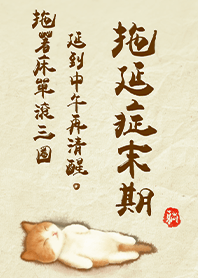 拖延症末期
延到中午再清醒。
拖著床單滾三圈
躺